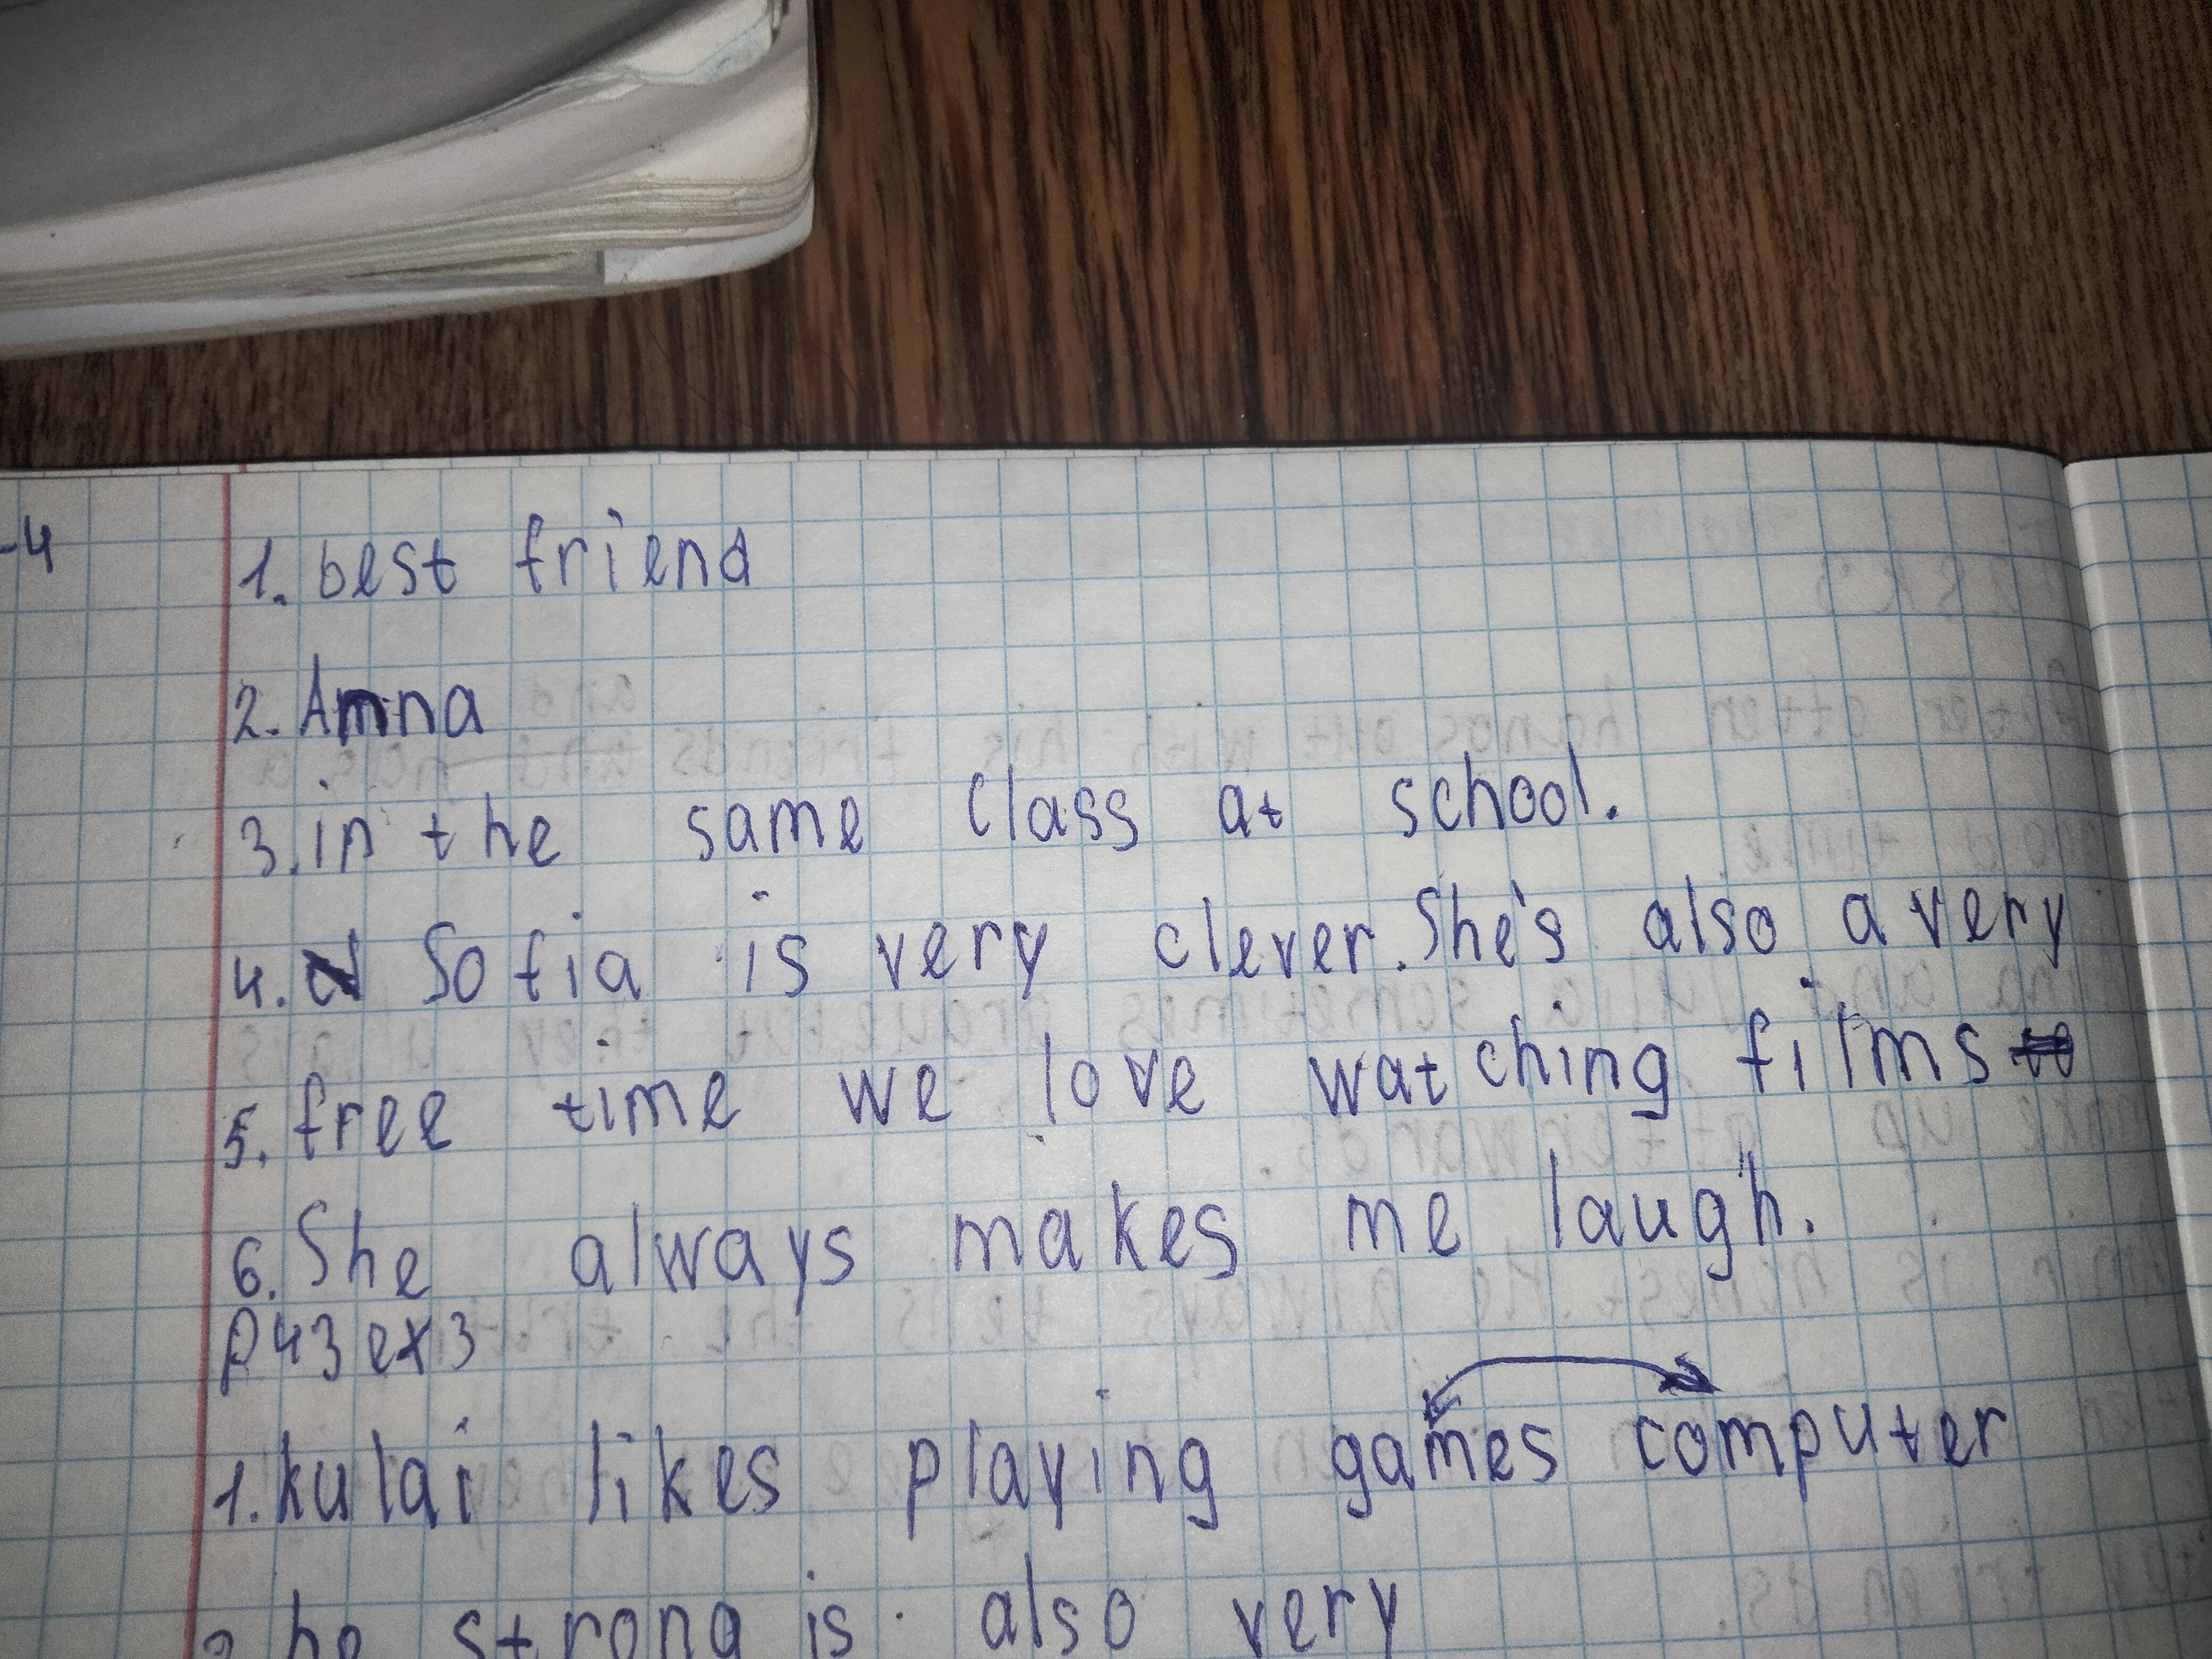 -4
1. best friend
2. Anna
3. in the same class at school.
4. Sofia is very clever. She's also a very
5. free time we love watching films
6. She always makes me laugh.
p43 ex3
1. kulai likes playing games computer
2. he strong is also very